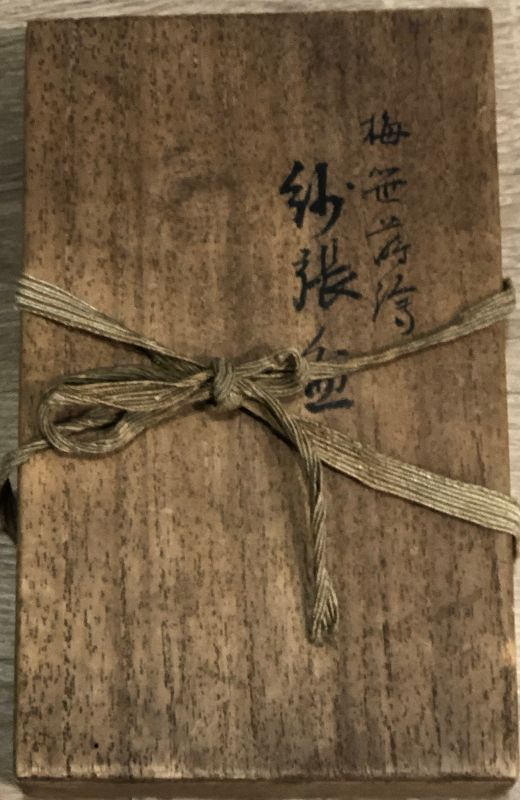 梅笹蒔絵
紗張盆